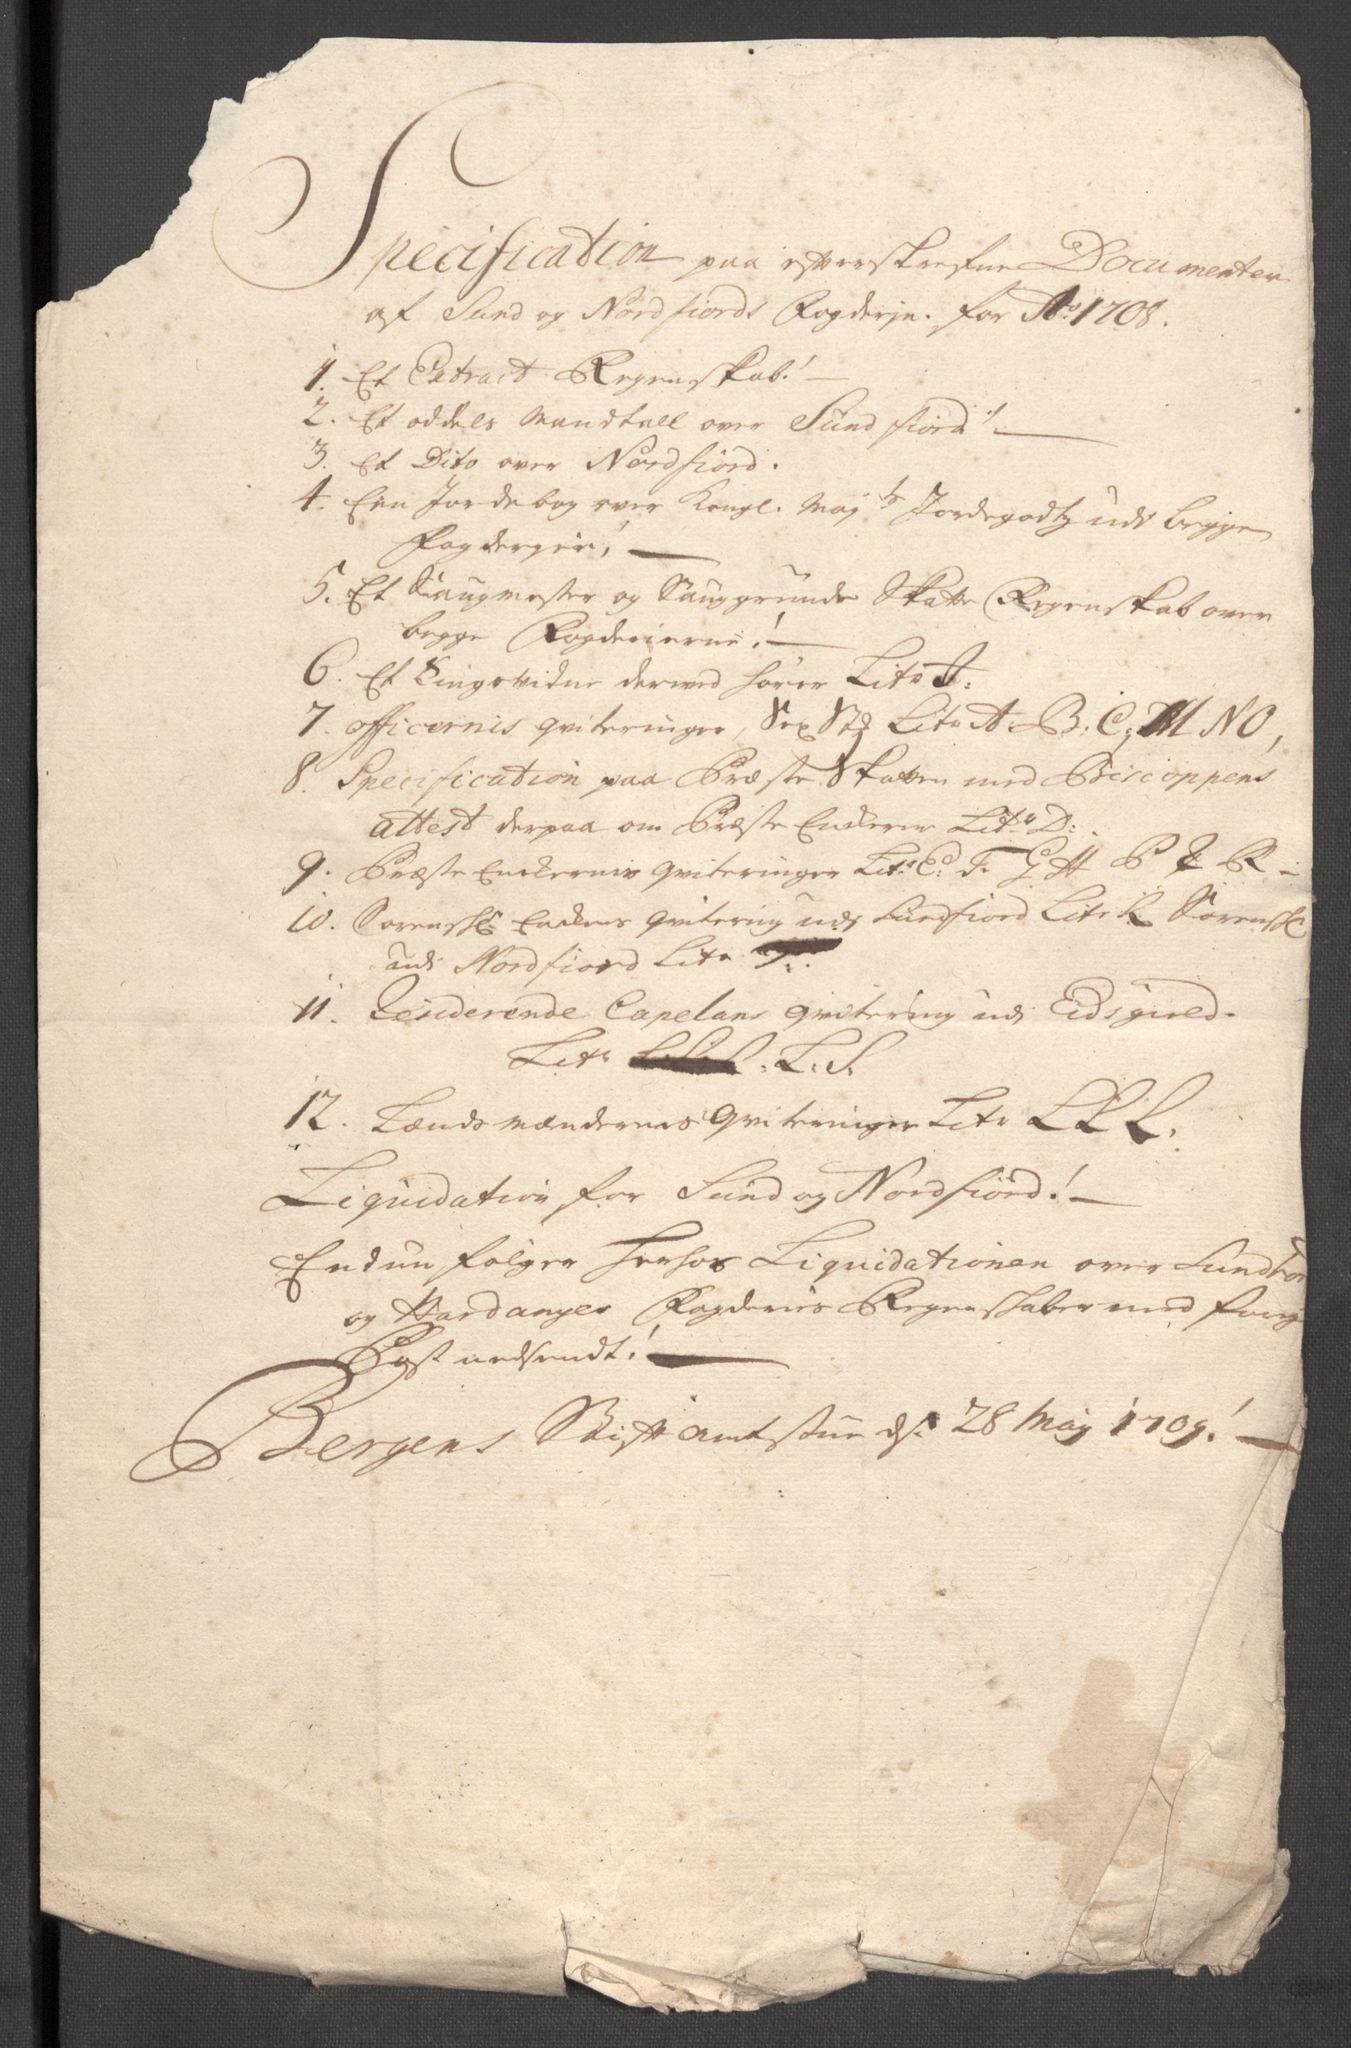 Specification paa efterskrefne Documenter
af Sund og Nordfiords Fogderje. for Ao. 1708.
1. Et Extract Regenskab!
2. Et oddels Mandtall over Sundfiord!
3. Et Dito over Nordfiord.
4. Een Jordebog over Kongl. Maj ts Jordegodtz udi begge
Fogderjer!
5. Et Saugmester og Sauggrunds Skatte Regenskab over
begge Fogderierne!
6. Et Tingsvidne derved hører Litr J:
7. officernis qviteringer, Sex Stk Litr A. B. C. M N O,
8. Specification paa Præste Skatten med Biscoppens
attest derpaa om Præste Enckerne Litr D:
9. Præste Enckernis qviteringer Litr E. F. G H P Q R
10. Sorenskr: Enckens qvitering udj Sundfiord Litr K Sorenskr
udi Nordfiord Litr
11. Residerende Capelans qvitering udi Eidsgield.
Litr L. S.
12. Lændsmændernes qviteringer Litr L L L.
Liquidation for Sund og Nordfiord!
Endnu følger herhos Liquidationen over Sundhor
og Hardanger Fogderies Regenskaber med forig
Post nedsendt!
Bergens Stift amtstue ds. 28 Maj 1709!